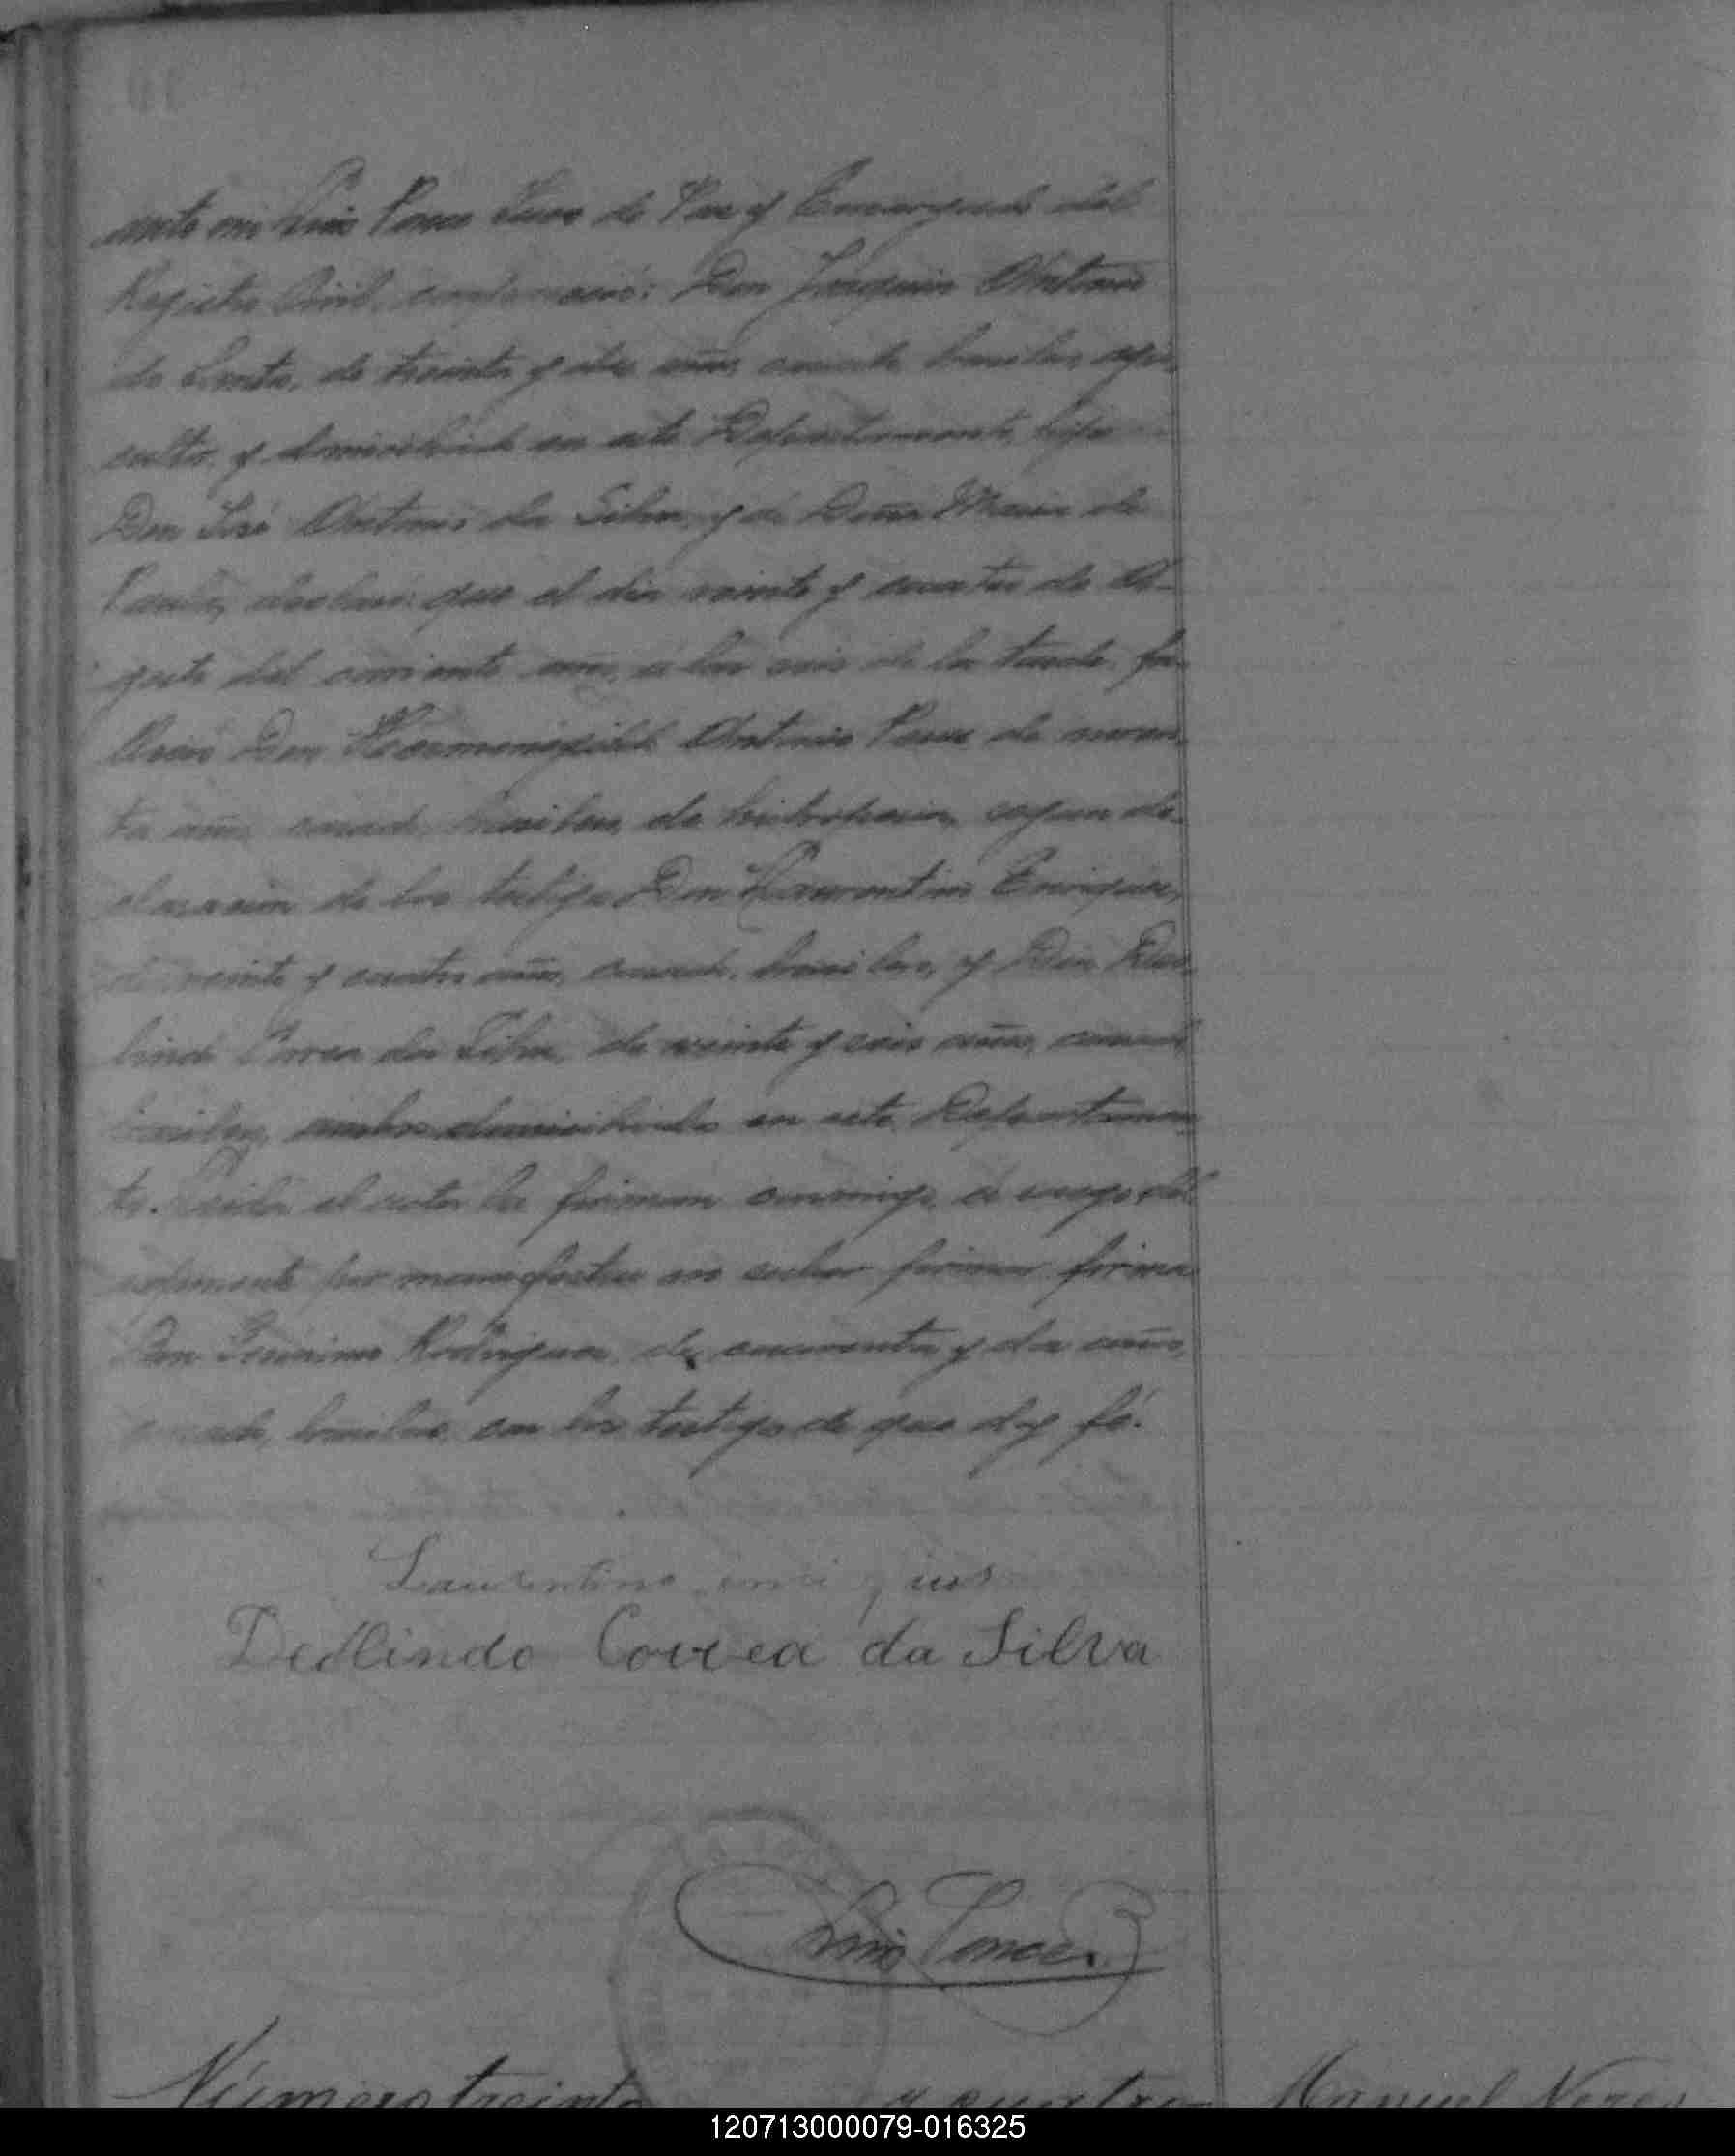 ante mi Luis Ponce Juez de Paz y Encargado del
Registro Civil, compareció: Don Joaquin Antonio
de treinta y dos años casado brasilero, agri
cultor y domiciliado en este Departamento, hijo
Don José Antonio da Silva, y de Doña Maria de
Paula, declaró: que el dia veinte y cuatro de A-
gosto del corriente año, a las seis de la tarde fa-
lleció Don Hermenegildo Antonio de noven
ta años, casado, brasilero, de hidropesia, segun de-
claracion de los testigos Don Laurentino Enriques,
de veinte y cuatro años, casado, brasilero, y Don Deo
lindo Correa da Silva, de veinte y seis años, casado
brasilero, ambos domiciliados en este Departamen
to. Leida el acta la firman conmigo, á ruego del
exponente por manifestar no saber firmar firma
Don Rodriguez, de cuarenta y dos años,
casado, brasilero, con los testigos de que doy fé.
Laurentino enriques
Deolindo Correa da Silva
Luis Ponce
Número treinta y cuatro Manuel
120713000079-016325